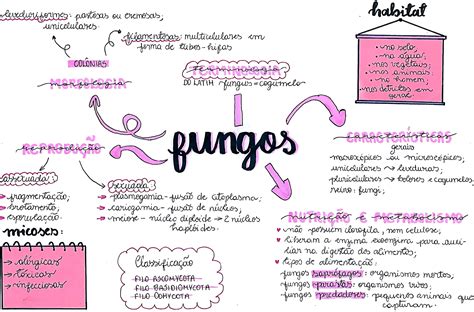 leveduriformes: pastosas ou cremosas,
unicelulares.
filamentosas: multicelulares em
forma de tubos-hifas
COLÔNIAS
MORFOLOGIA
TERMINOLOGIA
DO LATIM fungus = cogumelo
habitat
• no solo,
• na água,
• nos vegetais,
• nos animais,
• no homem,
• nos detritos em
geral
fungos
CARACTERÍSTICAS
gerais
macroscópicos ou microscópicos;
unicelulares → leveduras;
pluricelulares → bolores e cogumelos.
reino: fungi,
REPRODUÇÃO
assexuada
• fragmentação;
• brotamento;
• esporulação
sexuada
• plasmogamia - fusão de citoplasma;
• cariogamia - fusão de núcleos;
• meiose - núcleo diplóide → 2 núcleos
haplóides.
micoses:
• alérgicas
• tóxicas
• infecciosas
Classificação
FILO ASCOMYCOTA
FILO BASIDIOMYCOTA
FILO OOMYCOTA
NUTRIÇÃO E METABOLISMO
• não possuem clorofila, nem celulose;
• liberam a enzima exoenzima para auxi-
liar na digestão dos alimentos;
• tipos de alimentação:
fungos saprófagos: organismos mortos;
fungos parasitas: organismos vivos;
fungos predadores: pequenos animais que
capturam.